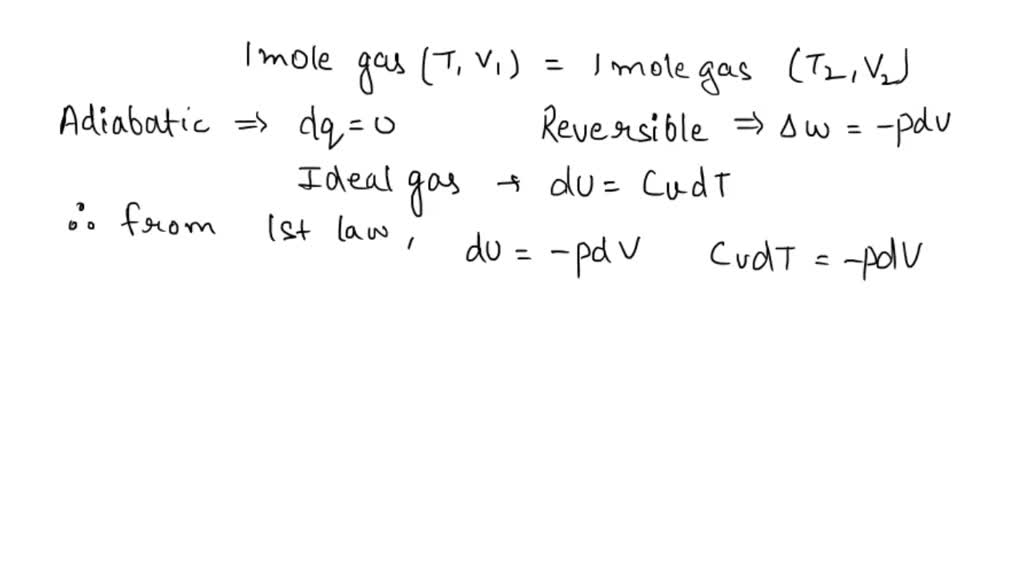 1 mole gas (T, V₁) = 1 mole gas (T₂, V₂)
Adiabatic ⇒ dq = 0 Reversible ⇒ Δw = -pdV
Ideal gas → dU = CvdT
∴ from 1st law, dU = -pdV CvdT = -pdV